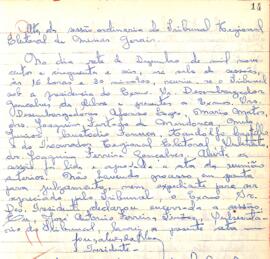 14
Ata da sessão ordinaria do Tribunal Regional
Eleitoral de Minas Gerais.
No dia sete de Dezembro de mil nove-
centos e cinquenta e seis, na sala de sessões
às 16 horas e 30 minutos, reuniu-se o Tribunal
sob a presidencia do Exmo. Sr. Desembargador
Gonçalves da Silva e presentes os Exmos. Srs.
Desembargadores Afonso Lage, Mario Matos,
drs. Joaquim Mendonça
e
do Procurador Regional Eleitoral
dr. Joaquim Ferreira Gonçalves. Aberta a
sessão foi lida e aprovada a ata da reunião
anterior. Não havendo processo em pauta
para julgamento, nem expediente para ser
apreciado pelo Tribunal, o Exmo. Sr.
Des. Presidente declarou encerrada a sessão.
Eu, José Antonio Ferreira
do Tribunal, lavrei a presente ata
Gonçalves da Silva
Presidente